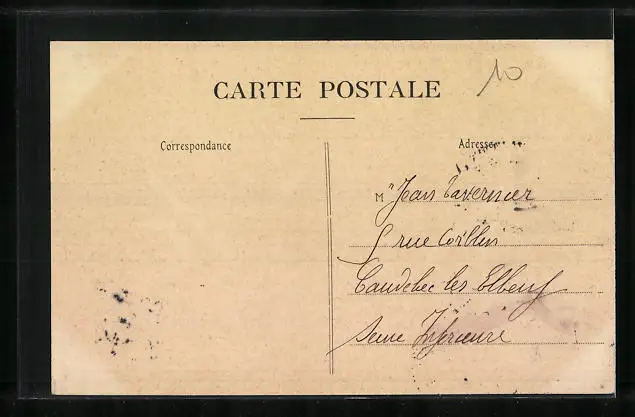 10
CARTE POSTALE
Correspondance
Adresse
M r Jean Tavernier
5 rue
Caudebec les Elbeuf
Seine Inférieure